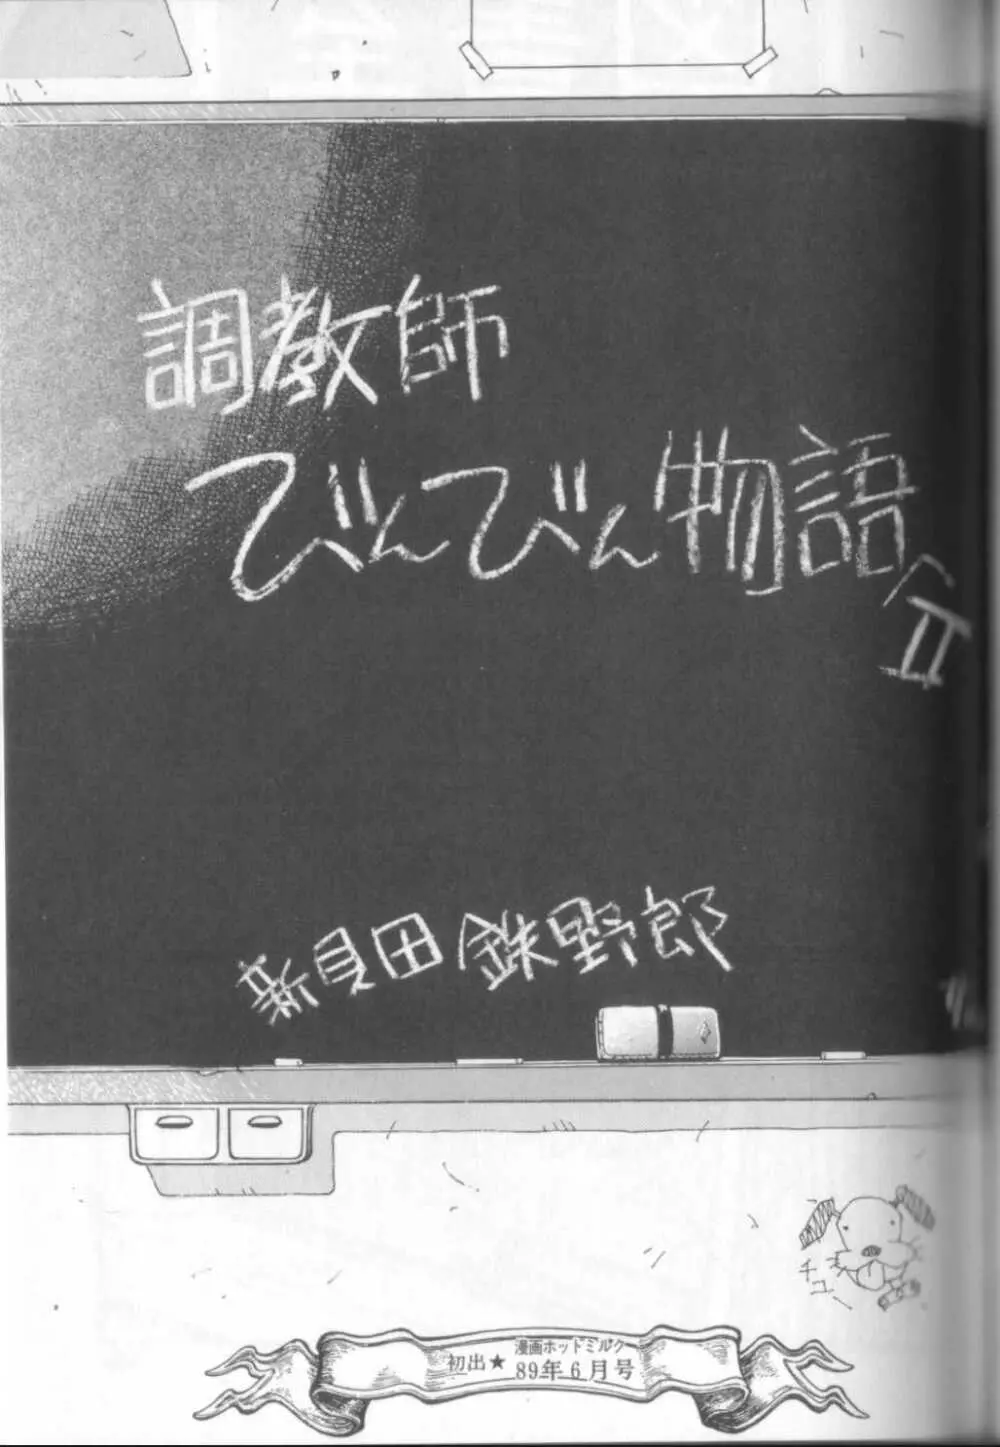 調教師
びんびん物語
II
新貝田鉄野郎
チュー
漫画ホットミルク
初出★89年6月号